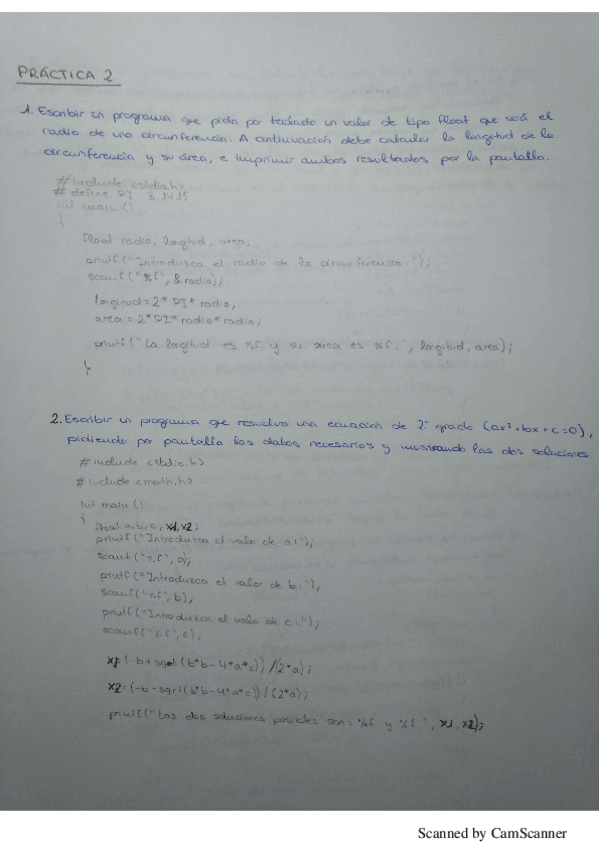 PRÁCTICA 2
1. Escribir un programa que pida por teclado un valor de tipo float que será el
radio de una circunferencia. A continuación debe calcular la longitud de la
circunferencia y su área, e imprimir ambos resultados por la pantalla.
#include <stdio.h>
# define PI 3.1415
int main ()
{
float radio, longitud, area;
printf ("Introduzca el radio de la circunferencia: ");
scanf ("%f", &radio);
longitud = 2* PI* radio;
area = 2*PI* radio*radio;
printf ("La longitud es %f y su area es %f:", longitud, area);
}
2. Escribir un programa que resuelva una ecuación de 2º grado (ax²+bx+c=0),
pidiendo por pantalla los datos necesarios y mostrando las dos soluciones.
# include <stdio.h>
# include <math.h>
int main ()
{
float a,b,c, x1,x2;
printf ("Introduzca el valor de a:");
scanf ("%f", a);
printf ("Introduzca el valor de b:"),
scanf ("%f", b),
printf ("Introduzca el valor de c:");
scanf ("%f", c);
x1= (-b+sqrt (b*b-4*a*c)) /(2*a);
x2= (-b-sqrt (b*b-4*a*c)) / (2*a);
printf ("Las dos soluciones posibles son: %f y %f.", x1, x2);
Scanned by CamScanner